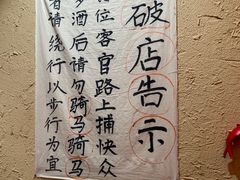 破店告示
位客官路上捕快众
多酒后请勿骑马骑马
者请绕行以步行为宜